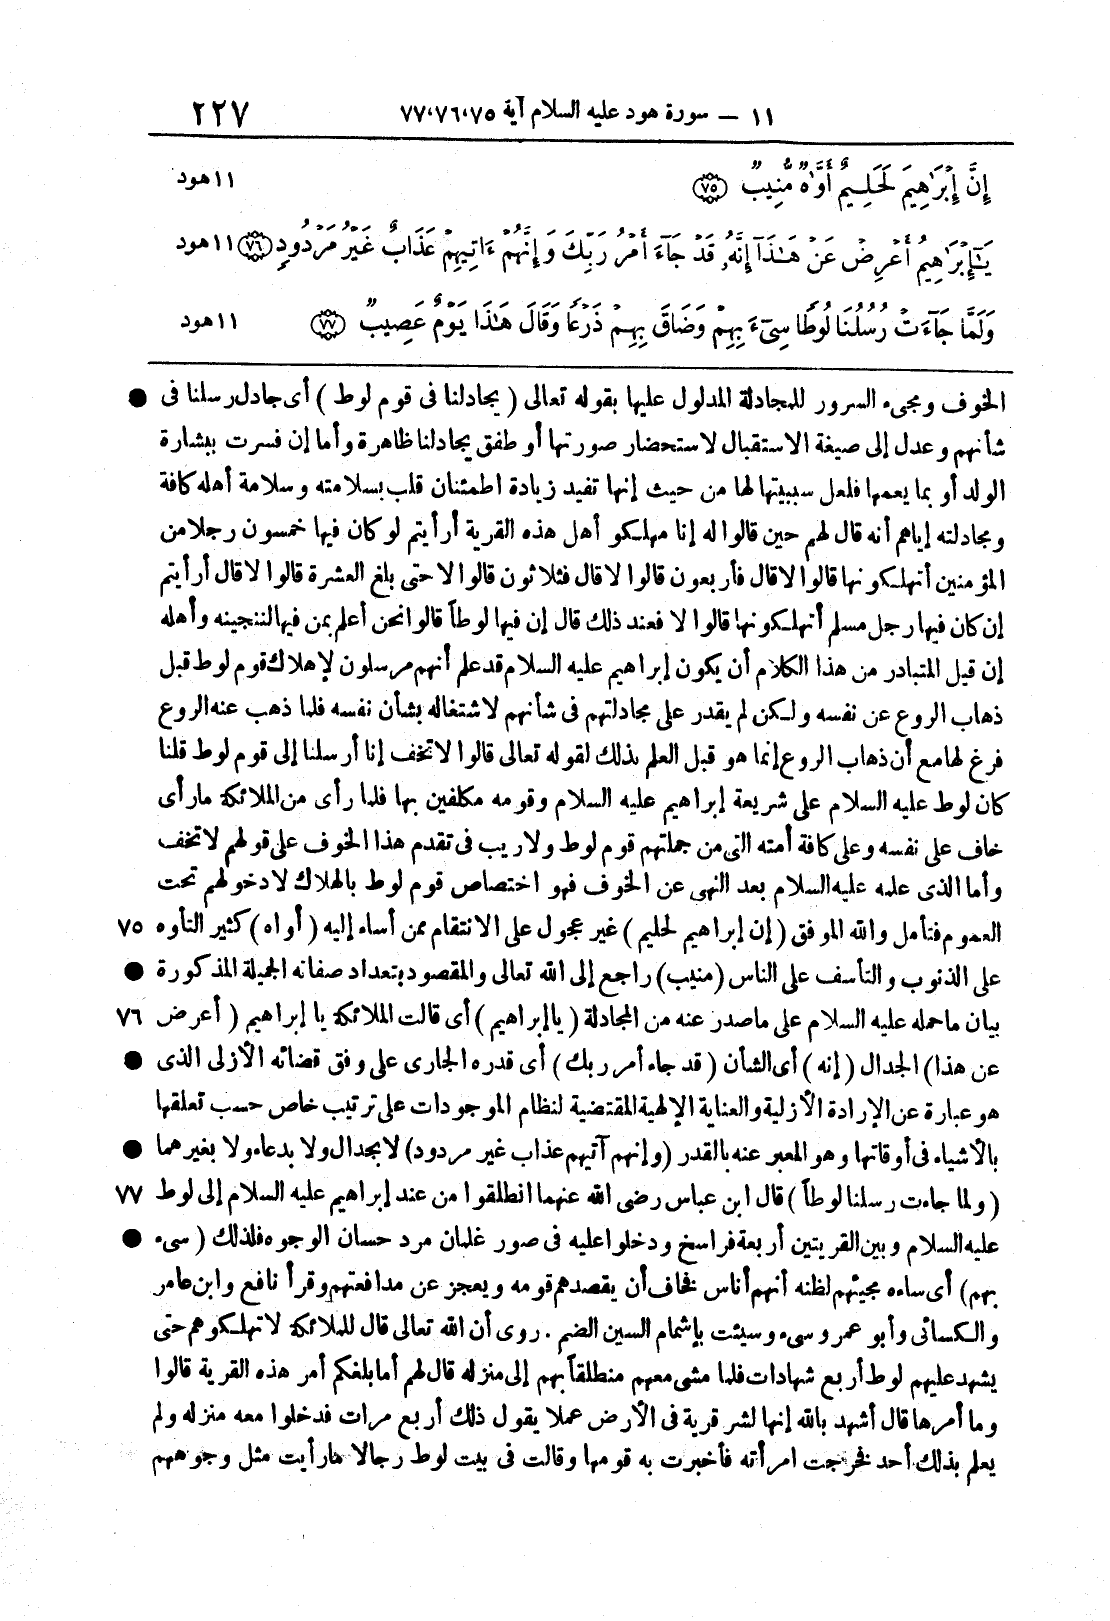 ١١ – سورة هود عليه السلام آية ٧٧،٧٦،٧٥ ٢٢٧
إِنَّ إِبْرَٰهِيمَ لَحَلِيمٌ أَوَّٰهٌ مُّنِيبٌ ﴿٧٥﴾ ١١ هود
يَـٰٓإِبْرَٰهِيمُ أَعْرِضْ عَنْ هَـٰذَآ إِنَّهُۥ قَدْ جَآءَ أَمْرُ رَبِّكَ وَإِنَّهُمْ ءَاتِيهِمْ عَذَابٌ غَيْرُ مَرْدُودٍ ﴿٧٦﴾ ١١ هود
وَلَمَّا جَآءَتْ رُسُلُنَا لُوطًا سِىٓءَ بِهِمْ وَضَاقَ بِهِمْ ذَرْعًا وَقَالَ هَـٰذَا يَوْمٌ عَصِيبٌ ﴿٧٧﴾ ١١ هود
الخوف ومجىء السرور للمجادلة المدلول عليها بقوله تعالى ( يجادلنا فى قوم لوط ) أى جادل رسلنا فى ●
شأنهم وعدل إلى صيغة الاستقبال لاستحضار صورتها أو طفق يجادلنا ظاهرة وأما إن فسرت ببشارة
الولد أو بما يعمها فلعل سببيتها لها من حيث إنها تفيد زيادة اطمئنان قلبه بسلامته وسلامة أهله كافة
ومجادلته إياهم أنه قال لهم حين قالوا له إنا مهلكو أهل هذه القرية أرأيتم لو كان فيها خمسون رجلا من
المؤمنين أتهلكونها قالوا لا قال فأربعون قالوا لا قال فثلاثون قالوا لا حتى بلغ العشرة قالوا لا قال أرأيتم
إن كان فيها رجل مسلم أتهلكونها قالوا لا فعند ذلك قال إن فيها لوطاً قالوا نحن أعلم بمن فيها لننجينه وأهله
إن قيل المتبادر من هذا الكلام أن يكون إبراهيم عليه السلام قد علم أنهم مرسلون لإهلاك قوم لوط قبل
ذهاب الروع عن نفسه ولكن لم يقدر على مجادلتهم فى شأنهم لاشتغاله بشأن نفسه فلما ذهب عنه الروع
فرغ لها مع أن ذهاب الروع إنما هو قبل العلم بذلك لقوله تعالى قالوا لا تخف إنا أرسلنا إلى قوم لوط قلنا
كان لوط عليه السلام على شريعة إبراهيم عليه السلام وقومه مكلفين بها فلما رأى من الملائكة ما رأى
خاف على نفسه وعلى كافة أمته التى من جملتهم قوم لوط ولا ريب فى تقدم هذا الخوف على قولهم لا تخف
وأما الذى علمه عليه السلام بعد النهى عن الخوف فهو اختصاص قوم لوط بالهلاك لا دخولهم تحت
العموم فتأمل والله الموفق ( إن إبراهيم لحليم ) غير عجول على الانتقام ممن أساء إليه ( أواه ) كثير التأوه ٧٥
على الذنوب والتأسف على الناس (منيب) راجع إلى الله تعالى والمقصود بتعداد صفاته الجميلة المذكورة ●
بيان ما حمله عليه السلام على ما صدر عنه من المجادلة ( يا إبراهيم ) أى قالت الملائكة يا إبراهيم ( أعرض ٧٦
عن هذا) الجدال ( إنه ) أى الشأن ( قد جاء أمر ربك ) أى قدره الجارى على وفق قضائه الأزلى الذى ●
هو عبارة عن الإرادة الأزلية والعناية الإلهية المقتضية لنظام الموجودات على ترتيب خاص حسب تعلقها
بالأشياء فى أوقاتها وهو المعبر عنه بالقدر (وإنهم آتيهم عذاب غير مردود) لا بجدال ولا بدعاء ولا بغيرهما ●
( ولما جاءت رسلنا لوطاً ) قال ابن عباس رضى الله عنهما انطلقوا من عند إبراهيم عليه السلام إلى لوط ٧٧
عليه السلام وبين القريتين أربعة فراسخ ودخلوا عليه فى صور غلمان مرد حسان الوجوه فلذلك ( سىء ●
بهم) أى ساءه مجيئهم لظنه أنهم أناس فخاف أن يقصدهم قومه ويعجز عن مدافعتهم وقرأ نافع وابن عامر
والكسائى وأبو عمرو سىء وسيئت بإشمام السين الضم . روى أن الله تعالى قال للملائكة لا تهلكوهم حتى
يشهد عليهم لوط أربع شهادات فلما مشى معهم منطلقاً بهم إلى منزله قال لهم أما بلغكم أمر هذه القرية قالوا
وما أمرها قال أشهد بالله إنها لشر قرية فى الأرض عملا يقول ذلك أربع مرات فدخلوا معه منزله ولم
يعلم بذلك أحد فخرجت امرأته فأخبرت به قومها وقالت فى بيت لوط رجالا ما رأيت مثل وجوههم